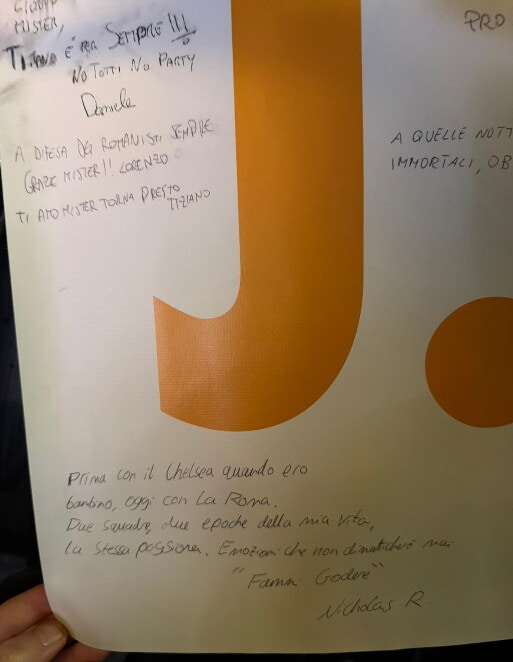 MISTER,
È PER SEMPRE !!!
NO TOTTI NO PARTY
Daniele
A DIFESA DEI ROMANISTI SEMPRE
GRAZIE MISTER!! LORENZO
TI AMO MISTER TORNA PRESTO
TIZIANO
PRO
A QUELLE NOTT
IMMORTALI, OB
J.
Prima con il Chelsea quando ero
bambino, oggi con La Roma.
Due squadre, due epoche della mia vita,
la stessa passione. Emozioni che non dimenticherò mai
"Fammi Godere"
Nicholas R.